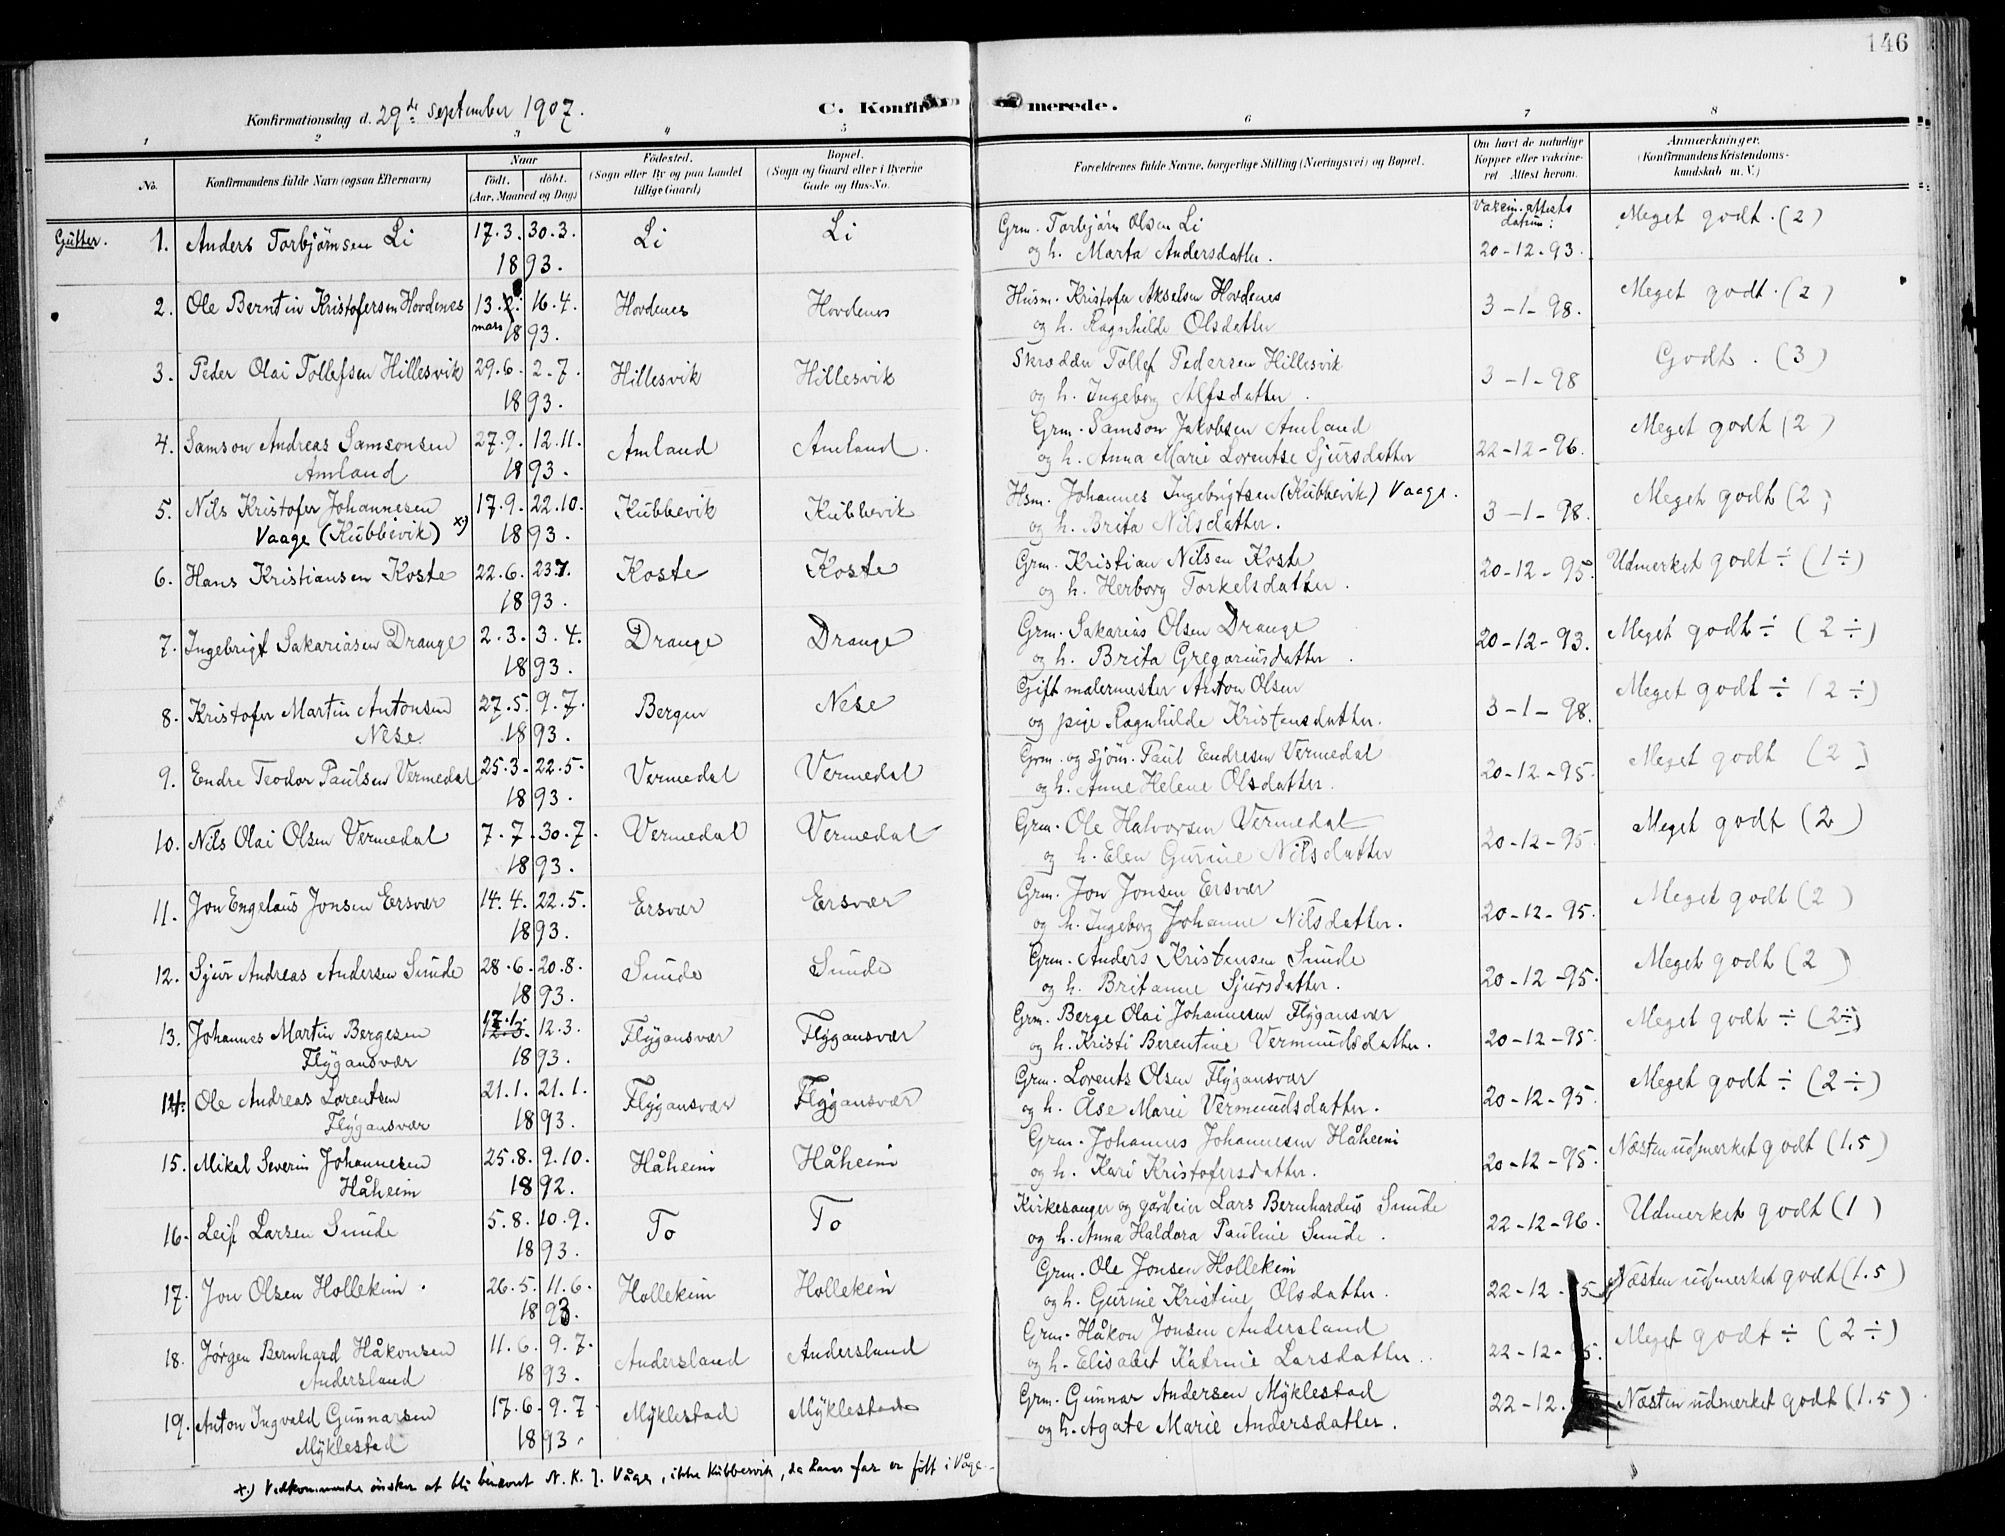 146
Konfirmationsdag d. 29de september 1907.
C. Konfirmerede.
1 2 3 4 5 6 7 8
No. Konfirmandens fulde Navn (ogsaa Efternavn) Naar født. døbt. (Aar, Maaned og Dag) Fødested. (Sogn eller By og paa Landet tillige Gaard) Bopæl. (Sogn og Gaard eller i Byerne Gade og Hus-No. Forældrenes fulde Navne, borgerlige Stilling (Næringsvei) og Bopæl. Om havt de naturlige Kopper eller vaccineret Attest herom. Anmærkninger. (Konfirmandens Kristendomskundskab m. V.)
Gutter. 1. Anders Torbjørnsen Li 17.3. 30.3. Li Li Grm. Torbjørn Olsen Li Vaccin. attests datum: Meget godt. (2)
1893. og h. Marta Andersdatter. 20-12-93.
2. Ole Berntin Kristofersen Hovdenes 13. 16.4. Hovdenes Hovdenes Husm. Kristofer Akselsen Hovdenes 3-1-98. Meget godt. (2)
mars 1893. og h. Ragnhilde Olsdatter
3. Peder Olai Tollefsen Hillesvik 29.6. 2.7. Hillesvik Hillesvik Skrædder Tollef Pedersen Hillesvik 3-1-98 Godt. (3)
1893. og h. Ingeborg Alfsdatter.
4. Samson Andreas Samsonsen 27.9. 12.11. Amland Amland. Grm. Samson Jakobsen Amland 22-12-96. Meget godt (2)
Amland 1893. og h. Anna Marie Lorentse Sjursdatter
5. Nils Kristofer Johannesen 17.9. 22.10. Kubbevik Kubbevik Hsm. Johannes Ingebrigtsen (Kubbevik) Vaage. 3-1-98. Meget godt (2)
Vaage (Kubbevik) x) 1893. og h. Brita Nilsdatter.
6. Hans Kristiansen Koste 22.6. 23.7. Koste Koste Grm. Kristian Nilsen Koste 20-12-95. Udmerket godt ÷ (1÷)
1893. og h. Herborg Torkelsdatter.
7. Ingebrigt Sakariasen Drange 2.3. 3.4. Drange Drange Grm. Sakarias Olsen Drange 20-12-93. Meget godt ÷ (2÷)
1893. og h. Brita Gregoriusdatter.
8. Kristofer Martin Antonsen 27.5. 9.7. Bergen Nese Gift malermester Anton Olsen 3-1-98. Meget godt ÷ (2÷)
Nese. 1893. og pige Ragnhilde Kristensdatter.
9. Endre Teodor Paulsen Vermedal 25.3. 22.5. Vermedal Vermedal Grm. og sjøm. Paul Endresen Vermedal 20-12-95. Meget godt (2)
1893. og h. Anne Helene Olsdatter.
10. Nils Olai Olsen Vermedal 7.7. 30.7. Vermedal Vermedal Grm. Ole Halvorsen Vermedal 20-12-95. Meget godt (2)
1893. og h. Elen Gurine Nilsdatter
11. Jon Engelaus Jonsen Ersvær 14.4. 22.5. Ersvær Ersvær Grm. Jon Jonsen Ersvær 20-12-95. Meget godt (2)
1893. og h. Ingeborg Johanne Nilsdatter.
12. Sjur Andreas Andersen Sunde 28.6. 20.8. Sunde Sunde Grm. Anders Kristensen Sunde 20-12-95. Meget godt (2)
1893. og h. Britanne Sjursdatter.
13. Johannes Martin Bergesen 17.1. 12.3. Flygansvær Flygansvær Grm. Berge Olai Johannesen Flygansvær 20-12-95. Meget godt ÷ (2÷)
Flygansvær 1893. og h. Kristi Berentine Vermundsdatter.
14. Ole Andreas Lorentsen 21.1. 21.1. Flygansvær Flygansvær Grm. Lorents Olsen Flygansvær 20-12-95. Meget godt ÷ (2÷)
Flygansvær 1893. og h. Åse Marie Vermundsdatter.
15. Mikal Severin Johannesen 25.8. 9.10. Håheim Håheim Grm. Johannes Johannesen Håheim 20-12-95. Næsten udmerket godt (1.5)
Håheim 1892. og h. Kari Kristofersdatter.
16. Leif Larsen Sunde 5.8. 10.9. To To Kirkesanger og gårdeier Lars Bernhardus Sunde 22-12-96. Udmerket godt (1)
1893. og h. Anna Haldora Pauline Sunde.
17. Jon Olsen Hollekim. 26.5. 11.6. Hollekim Hollekim Grm. Ole Jonsen Hollekim 22-12-5 Næsten udmerket godt (1.5)
1893. og h. Gurine Kristine Olsdatter.
18. Jørgen Bernhard Håkonsen 11.6. 9.7. Andersland Andersland Grm. Håkon Jonsen Andersland 22-12-95. Meget godt ÷ (2÷)
Andersland 1893. og h. Elisabet Katrine Larsdatter.
19. Anton Ingvald Gunnarsen 17.6. 9.7. Myklestad Myklestad Grm. Gunnar Andersen Myklestad 22-12. Næsten udmerket godt (1.5)
Myklestad 1893. og h. Agate Marie Andersdatter.
x) Vedkommende ønsker at bli benævnt N. K. J. Våge, ikke Kubbevik, da hans far er født i Våge.